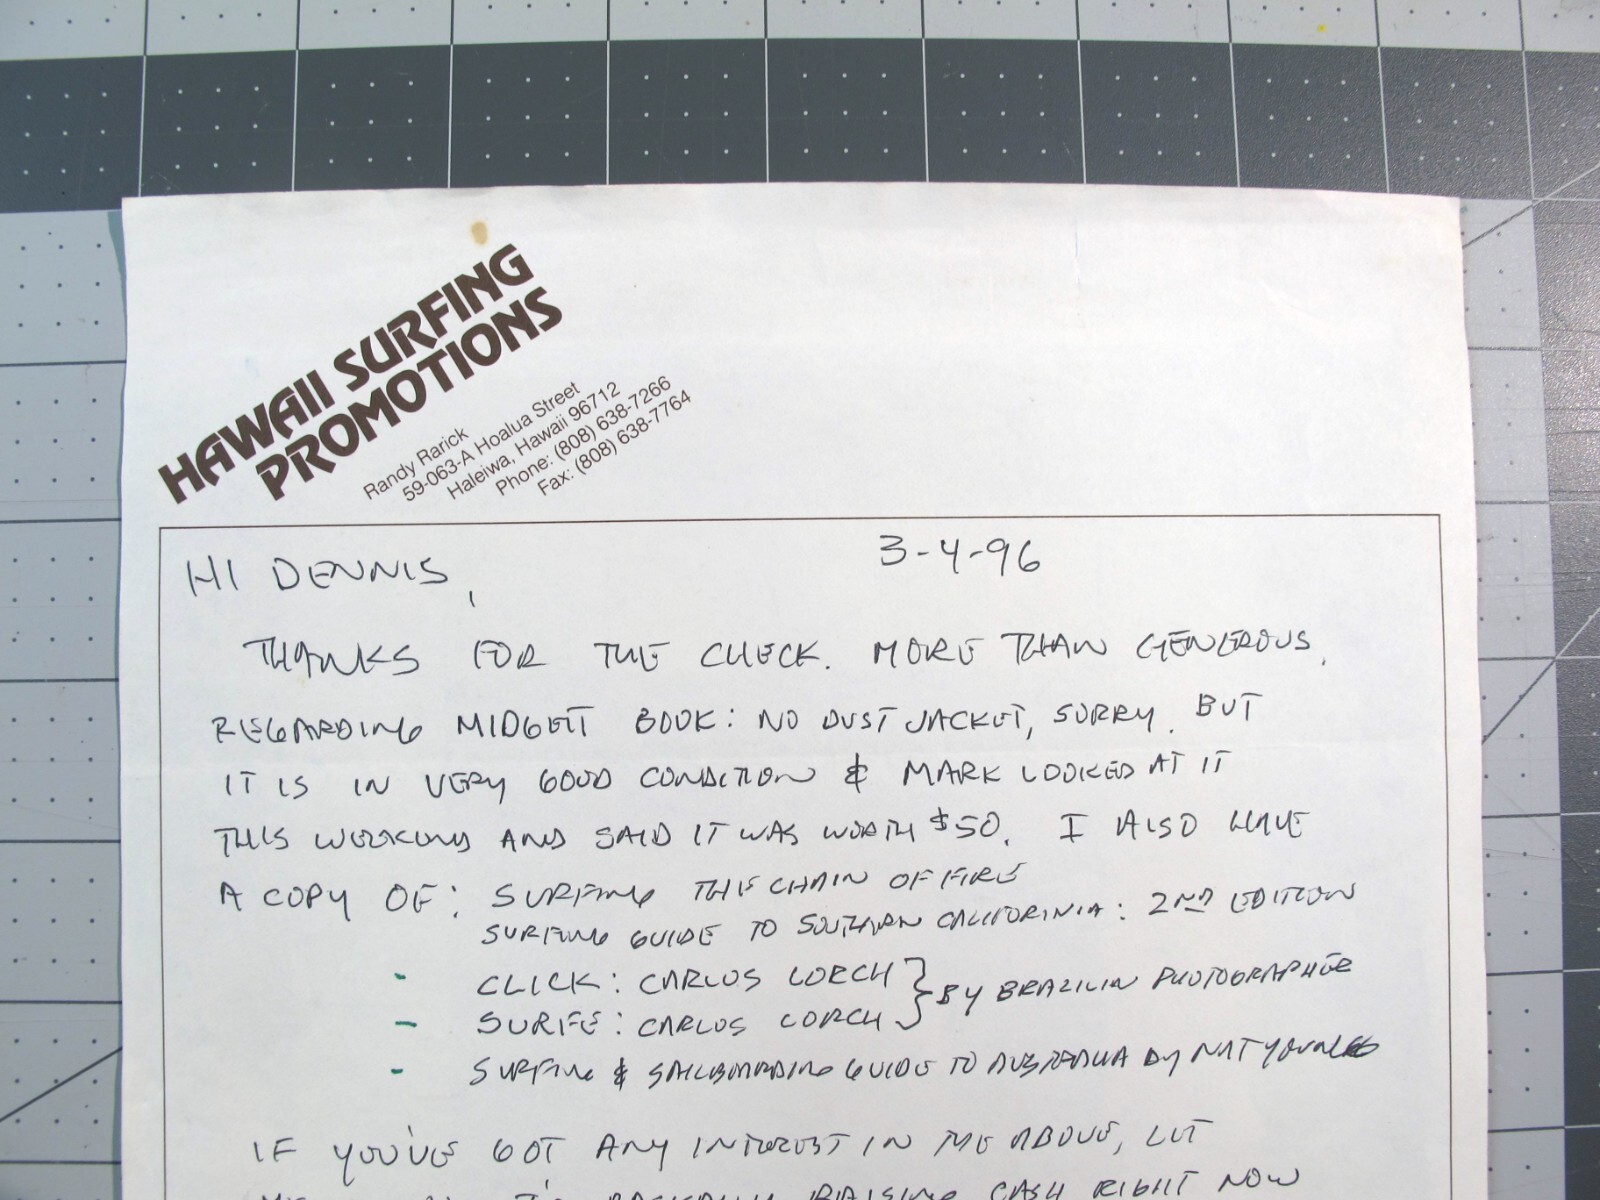 HAWAII SURFING
PROMOTIONS
Randy Rarick
59-063-A Hoalua Street
Haleiwa, Hawaii 96712
Phone: (808) 638-7266
Fax: (808) 638-7764
HI DENNIS, 3-4-96
THANKS FOR THE CHECK. MORE THAN GENEROUS.
REGARDING MIDGETT BOOK: NO DUST JACKET, SORRY. BUT
IT IS IN VERY GOOD CONDITION & MARK LOOKED AT IT
THIS WEEKEND AND SAID IT WAS WORTH $50. I ALSO HAVE
A COPY OF: SURFING THE CHAIN OF FIRE
SURFING GUIDE TO SOUTHERN CALIFORINIA: 2ND EDITION
- CLICK: CARLOS LORCH } BY BRAZILIN PHOTOGRAPHER
- SURFE: CARLOS LORCH
- SURFING & SAILBOARDING GUIDE TO AUSTRALIA BY NAT YOUNG
IF YOU'VE GOT ANY INTEREST IN THE ABOVE, LET
I'M BASICALLY RAISING CASH RIGHT NOW